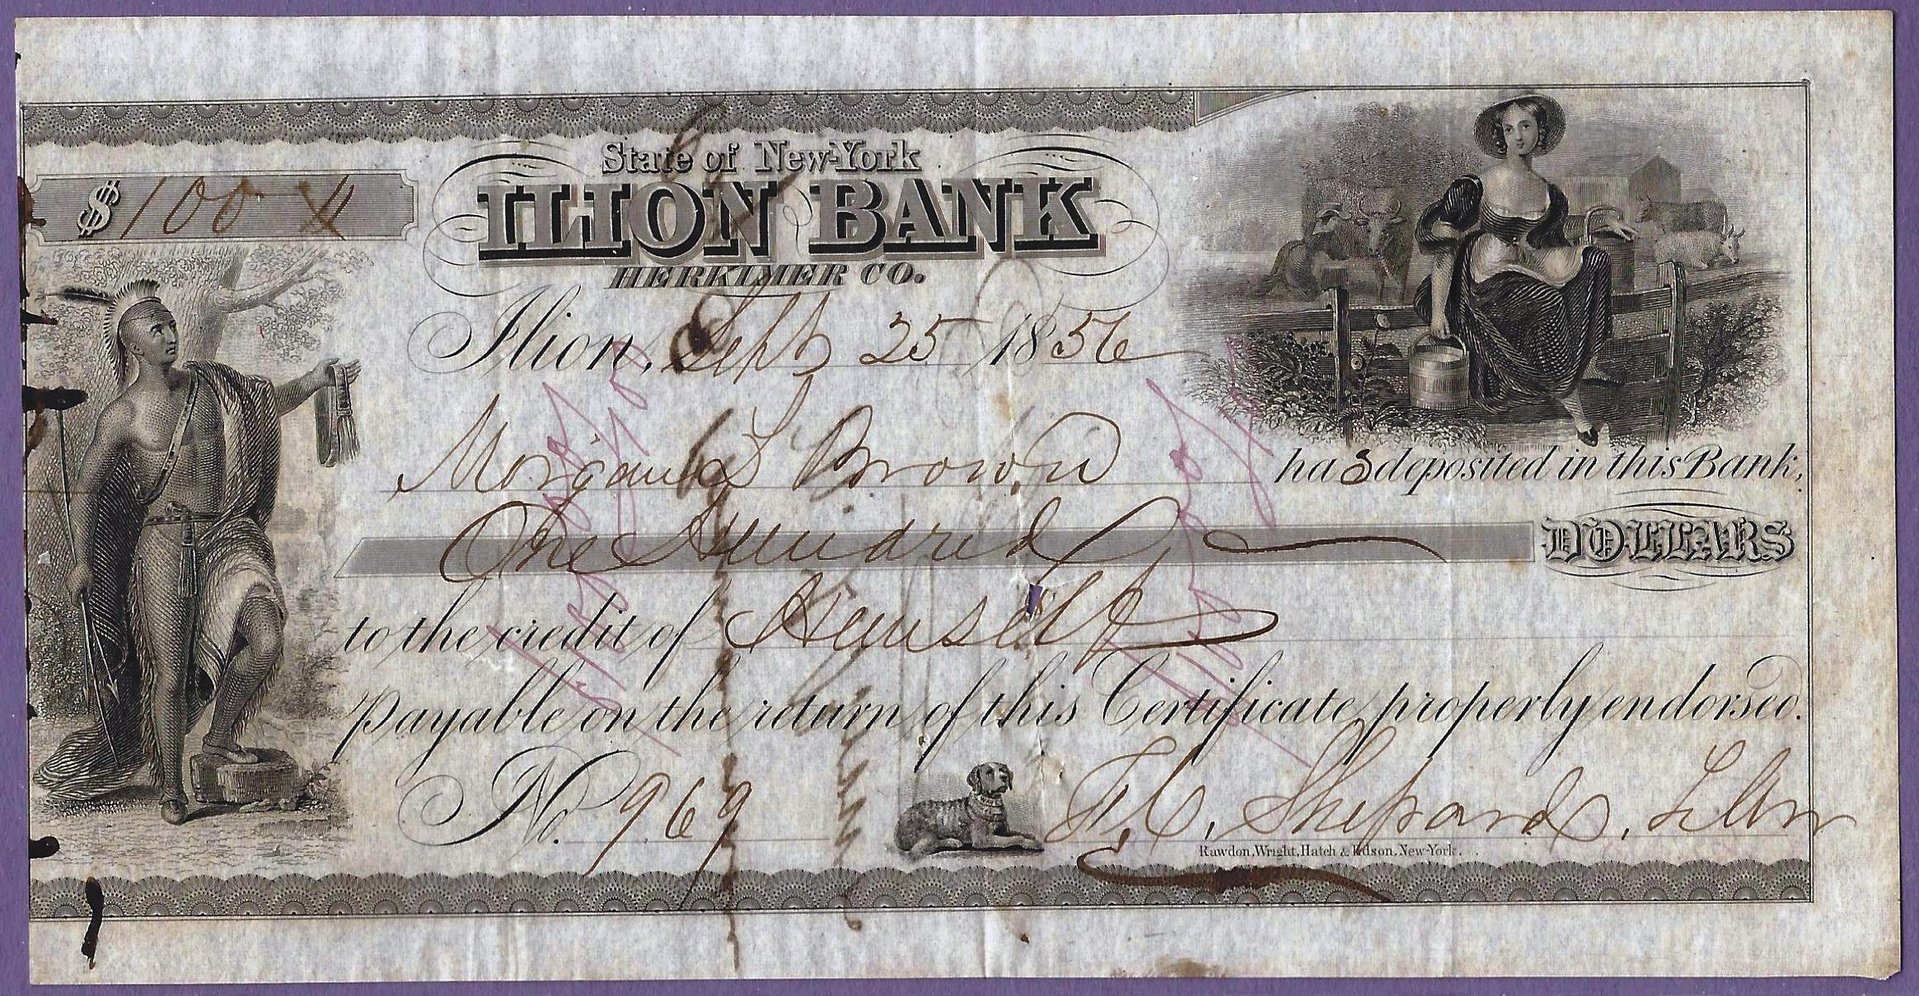 State of New-York
$ 100
ILION BANK
HERKIMER CO.
Ilion, Sept 25 1856
Morgan L Brown has deposited in this Bank,
One Hundred DOLLARS
to the credit of Himself
Payable on the return of this Certificate, properly endorsed.
No. 969 Shepard,
Rawdon, Wright, Hatch & Edson, New-York.